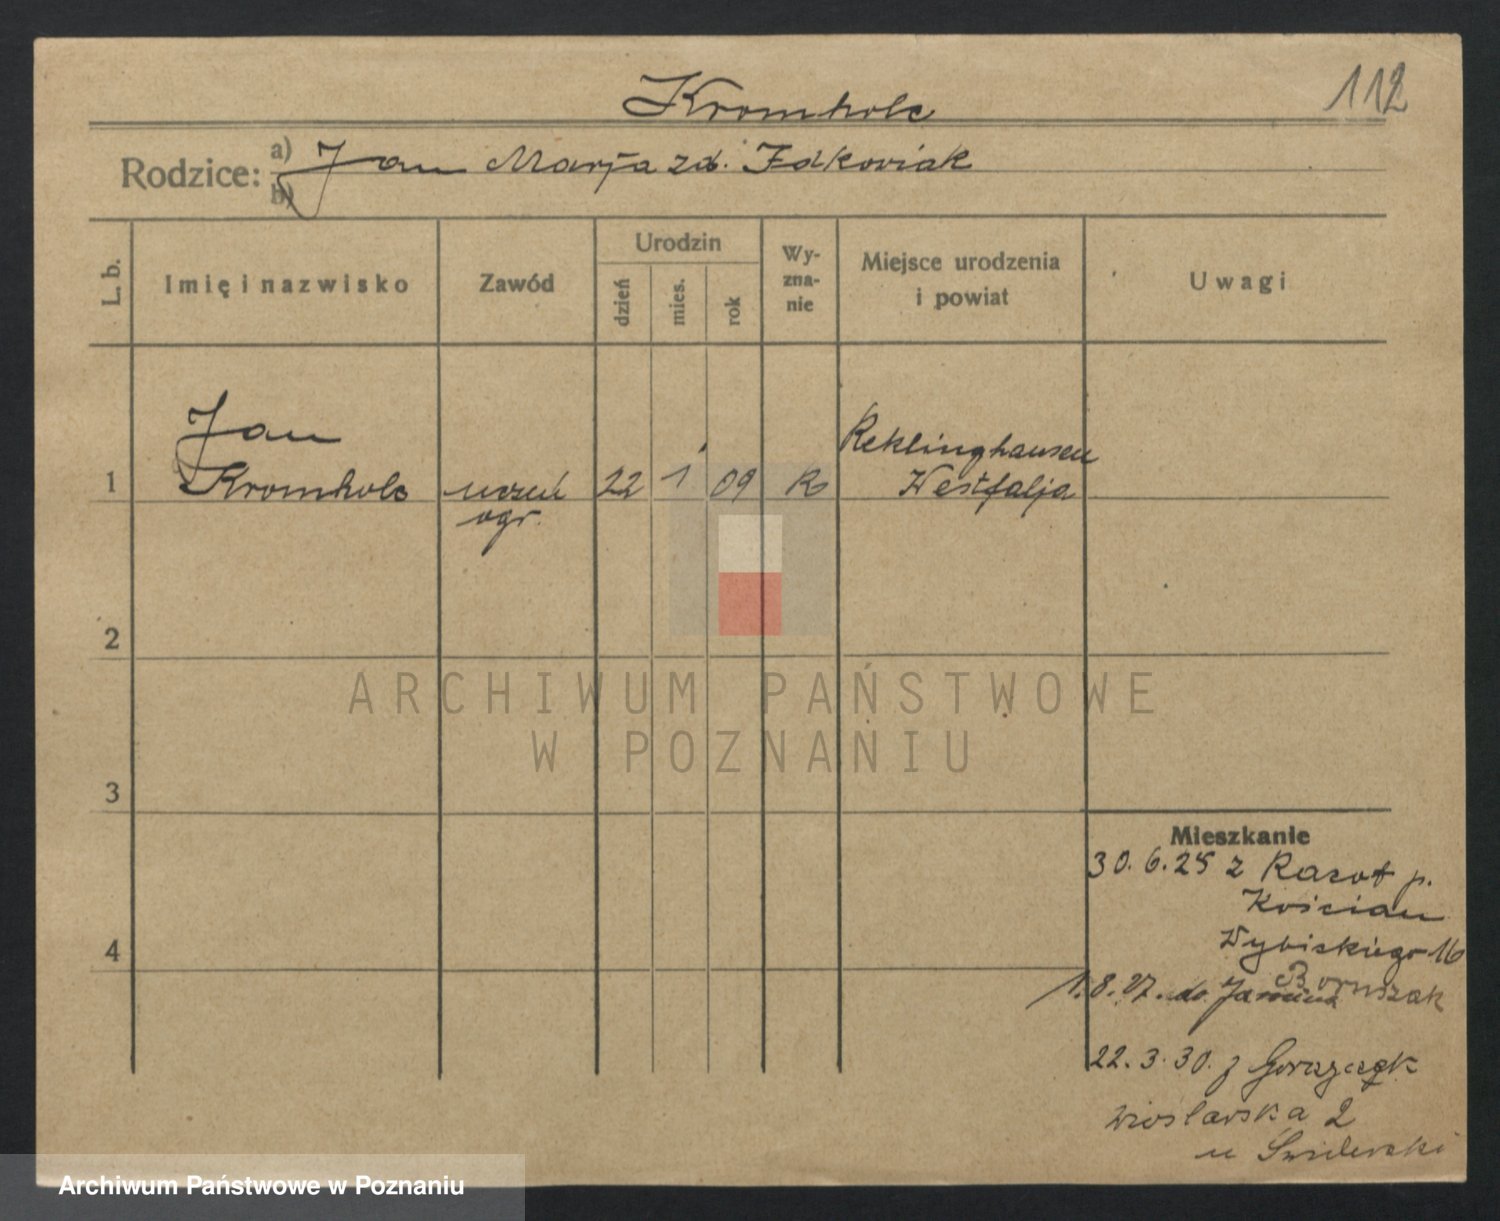 112
Kromholc
Rodzice: a) Jan Marja zd. Idkowiak
b)
L. b.
Imię i nazwisko
Zawód
Urodzin
dzień
mies.
rok
Wy-
zna-
nie
Miejsce urodzenia
i powiat
Uwagi
1
Jan
Kromholc
uczeń
ogr.
22
1
09
K
Reklinghausen
Westfalja
2
3
4
Mieszkanie
30.6.25 z Racot p.
Kościan
Wybickiego 16
Boruszak
1.8.27. do
22.3.30. z
Wioślarska 2
u Świderski
ARCHIWUM PAŃSTWOWE
W POZNANIU
Archiwum Państwowe w Poznaniu